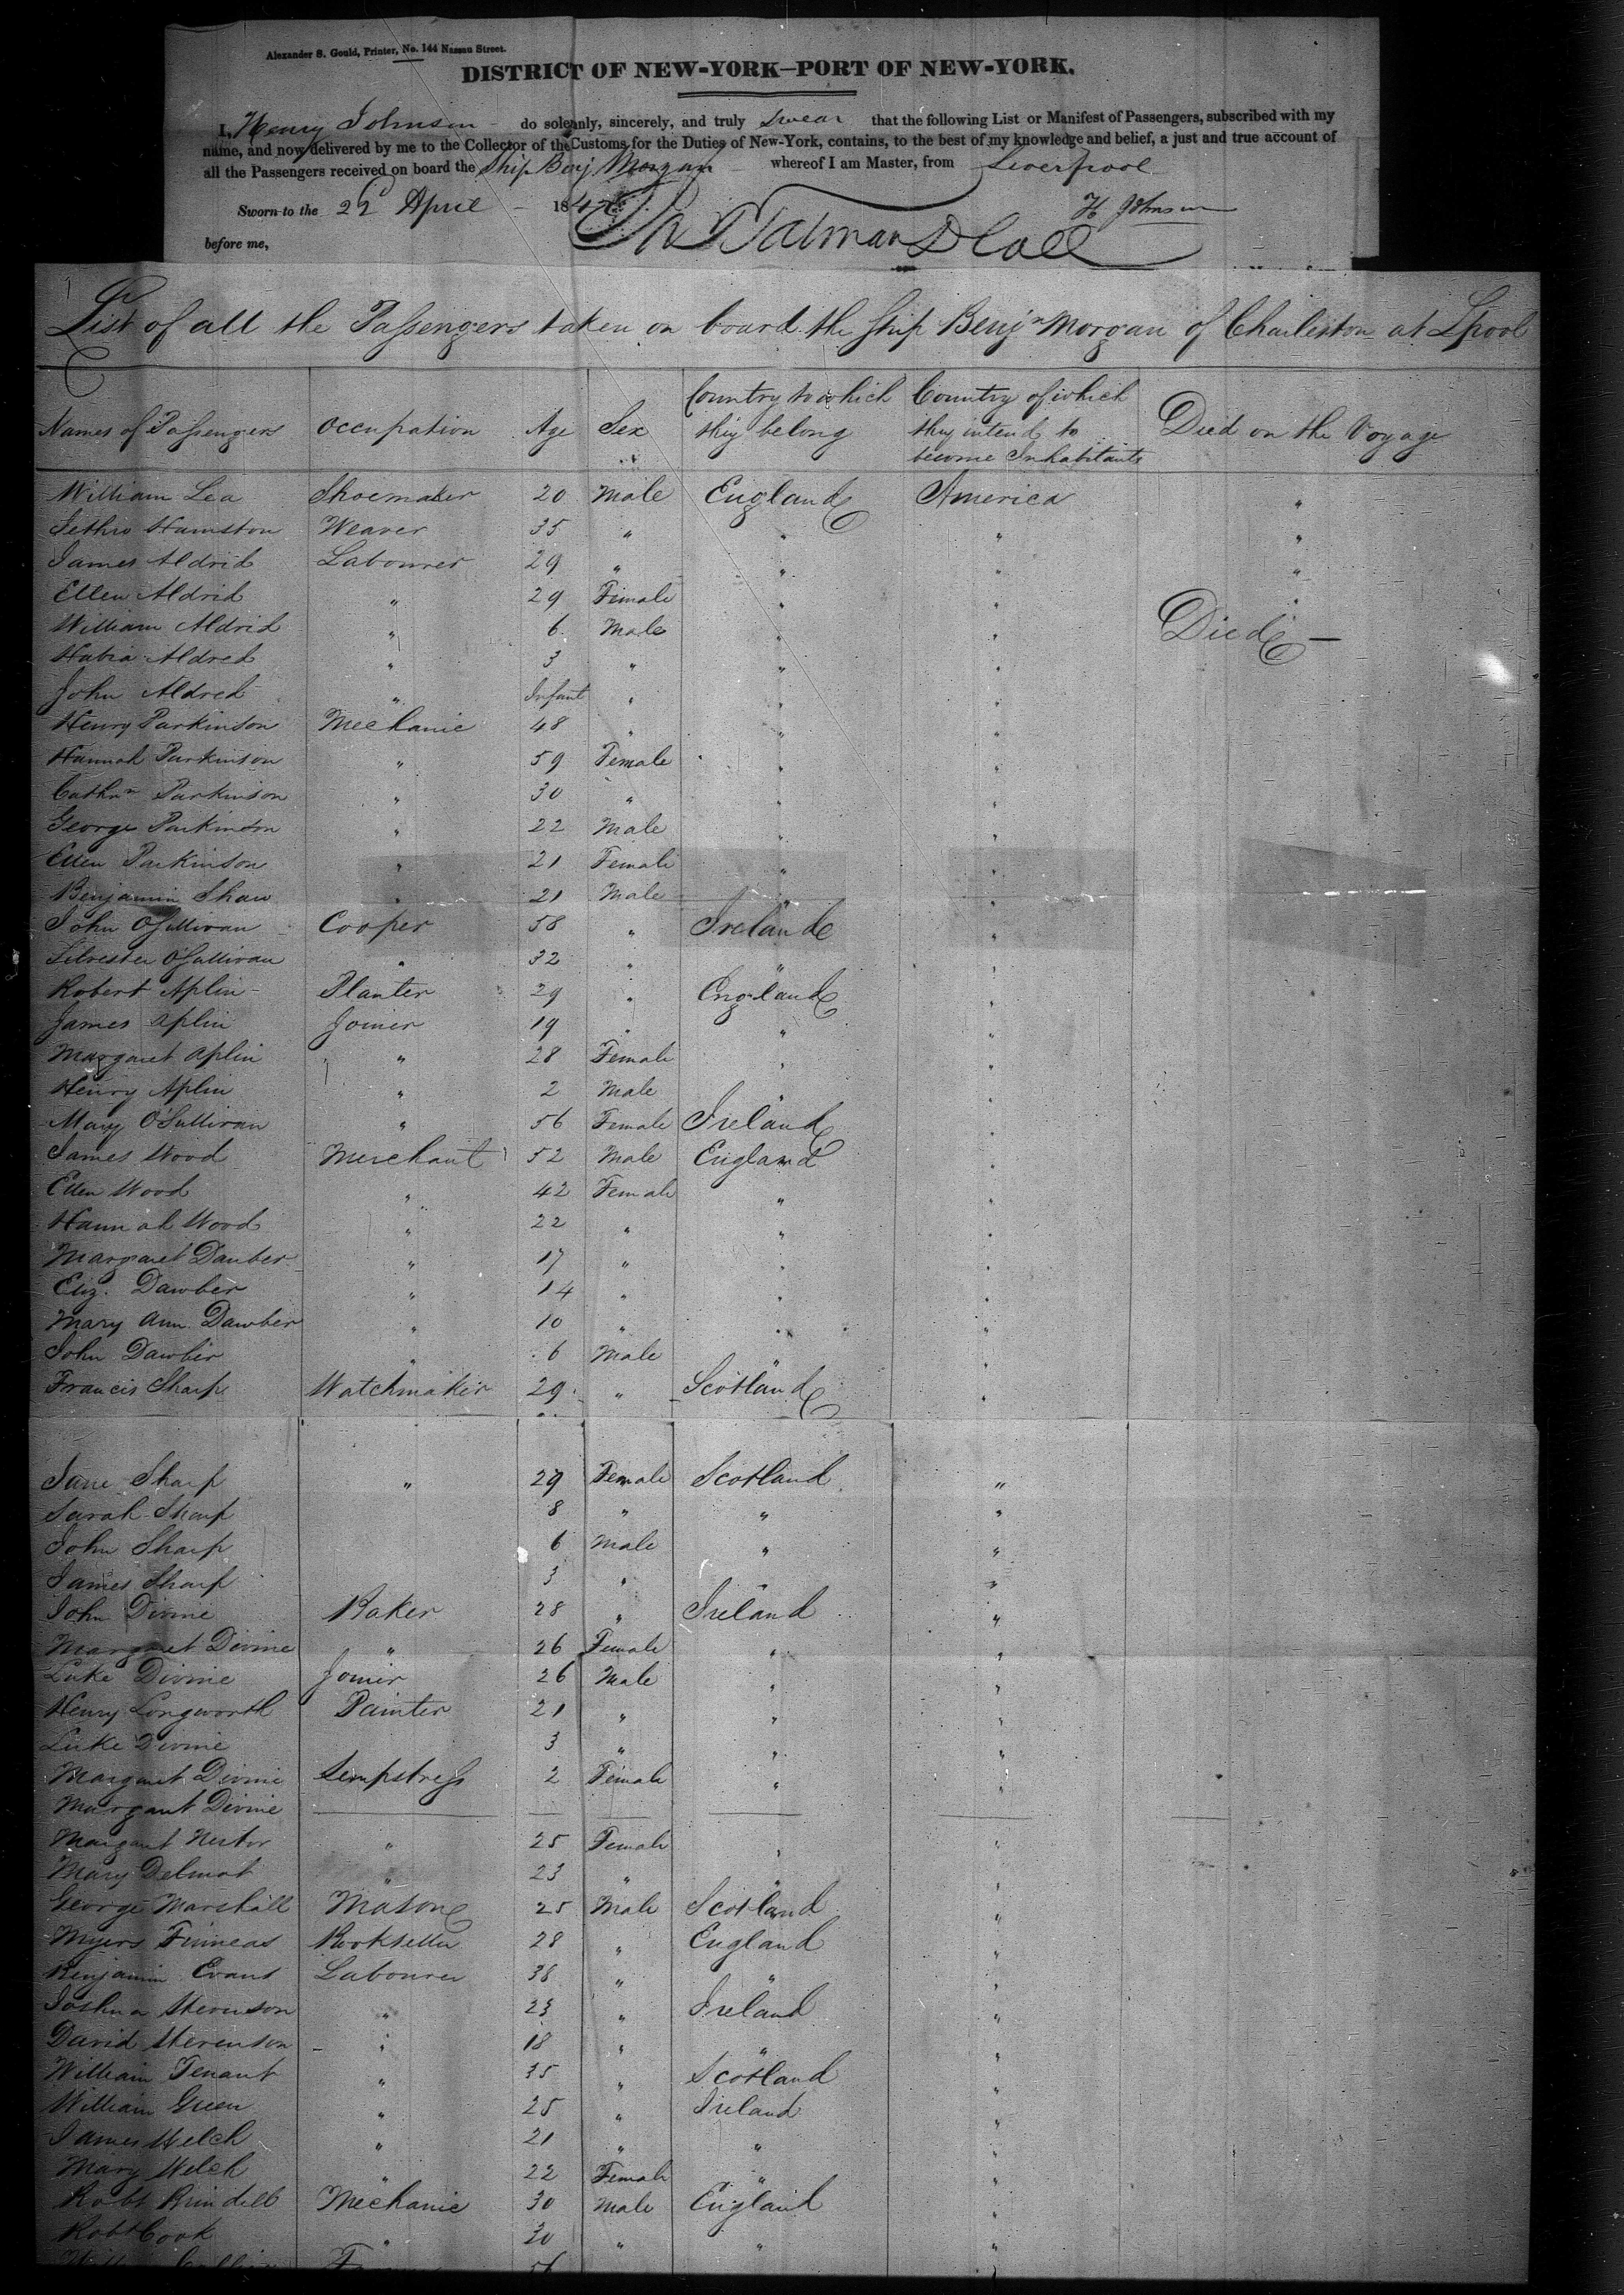 Alexander S. Gould, Printer, No. 144 Nassau Street.
DISTRICT OF NEW-YORK—PORT OF NEW-YORK.
I, Henry Johnson do solemnly, sincerely, and truly swear that the following List or Manifest of Passengers, subscribed with my
name, and now delivered by me to the Collector of the Customs for the Duties of New-York, contains, to the best of my knowledge and belief, a just and true account of
all the Passengers received on board the Ship Benj Morgan whereof I am Master, from Liverpool
Sworn to the 22 April 184 H Johnson
before me,
List of all the Passengers taken on board the Ship Benjn Morgan of Charleston at Lpool
Names of Passengers Occupation Age Sex Country to which they belong Country of which they intend to become Inhabitants Died on the Voyage
William Lea Shoemaker 20 Male England America "
Jethro Hamston Weaver 35 " " " "
James Aldrid Labourer 29 " " " "
Ellen Aldrid " 29 Female " " "
William Aldrid " 6 Male " " Died —
Aldred " 3 " " "
John Aldred " Infant " " "
Henry Parkinson Mechanic 48 " " "
Hannah Parkinson " 59 Female " "
Cathn Parkinson " 30 " " "
George Parkinson " 22 Male " "
Ellen Parkinson " 21 Female " "
Benjamin Shaw " 21 Male " "
John O'Sullivan Cooper 58 " Ireland "
Silvester O'Sullivan " 32 " " "
Robert Aplin Planter 29 " England "
James Aplin Joiner 19 " " "
Margaret Aplin " 28 Female " "
Henry Aplin " 2 Male " "
Mary O'Sullivan " 56 Female Ireland "
James Wood Merchant 52 Male England "
Ellen Wood " 42 Female " "
Hannah Wood " 22 " " "
Margaret Dauber " 17 " " "
Eliz. Dawber " 14 " " "
Mary Ann Dawber " 10 " " "
John Dawber " 6 Male " "
Francis Sharp Watchmaker 29 " Scotland "
Jane Sharp " 29 Female Scotland "
Sarah Sharp 8 " " "
John Sharp 6 Male " "
James Sharp 3 " " "
John Divine Baker 28 " Ireland "
Margaret Divine " 26 Female " "
Luke Divine Joiner 26 Male " "
Henry Longworth Painter 21 " " "
Luke Divine 3 " " "
Margaret Divine Sempstress 2 Female " "
Margaret Divine
Margaret Nestor " 25 Female " "
Mary Delmat " 23 " " "
George Marshall Mason 25 Male Scotland "
Myers Finneas Bookseller 28 " England "
Benjamin Evans Labourer 38 " " "
Joshua Stevenson " 23 " Ireland "
David Stevenson " 18 " " "
William Tenant " 35 " Scotland "
William Green " 25 " Ireland "
James Welch " 21 " " "
Mary Welch " 22 Female " "
Robt Mechanic 30 Male England "
Robt Cook " 30 " " "
56